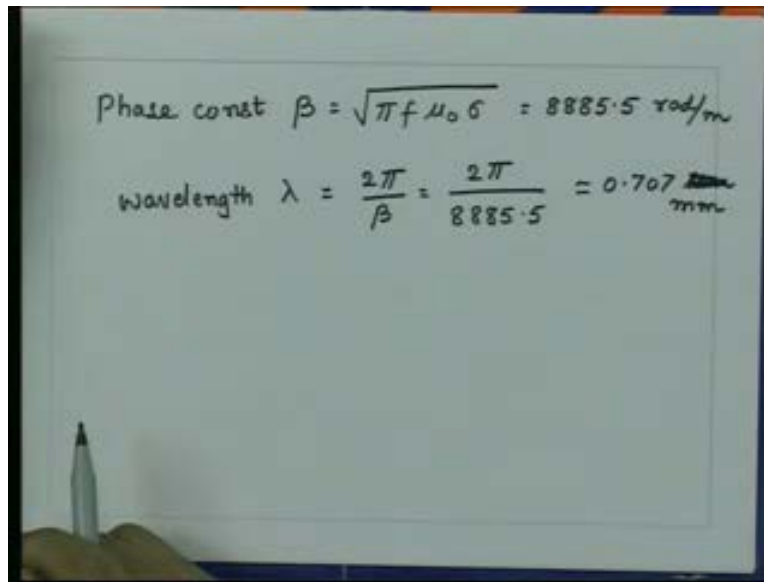 Phase const β = √πfμ₀σ = 8885.5 rad/m
wavelength λ = 2π/β = 2π/8885.5 = 0.707 mm